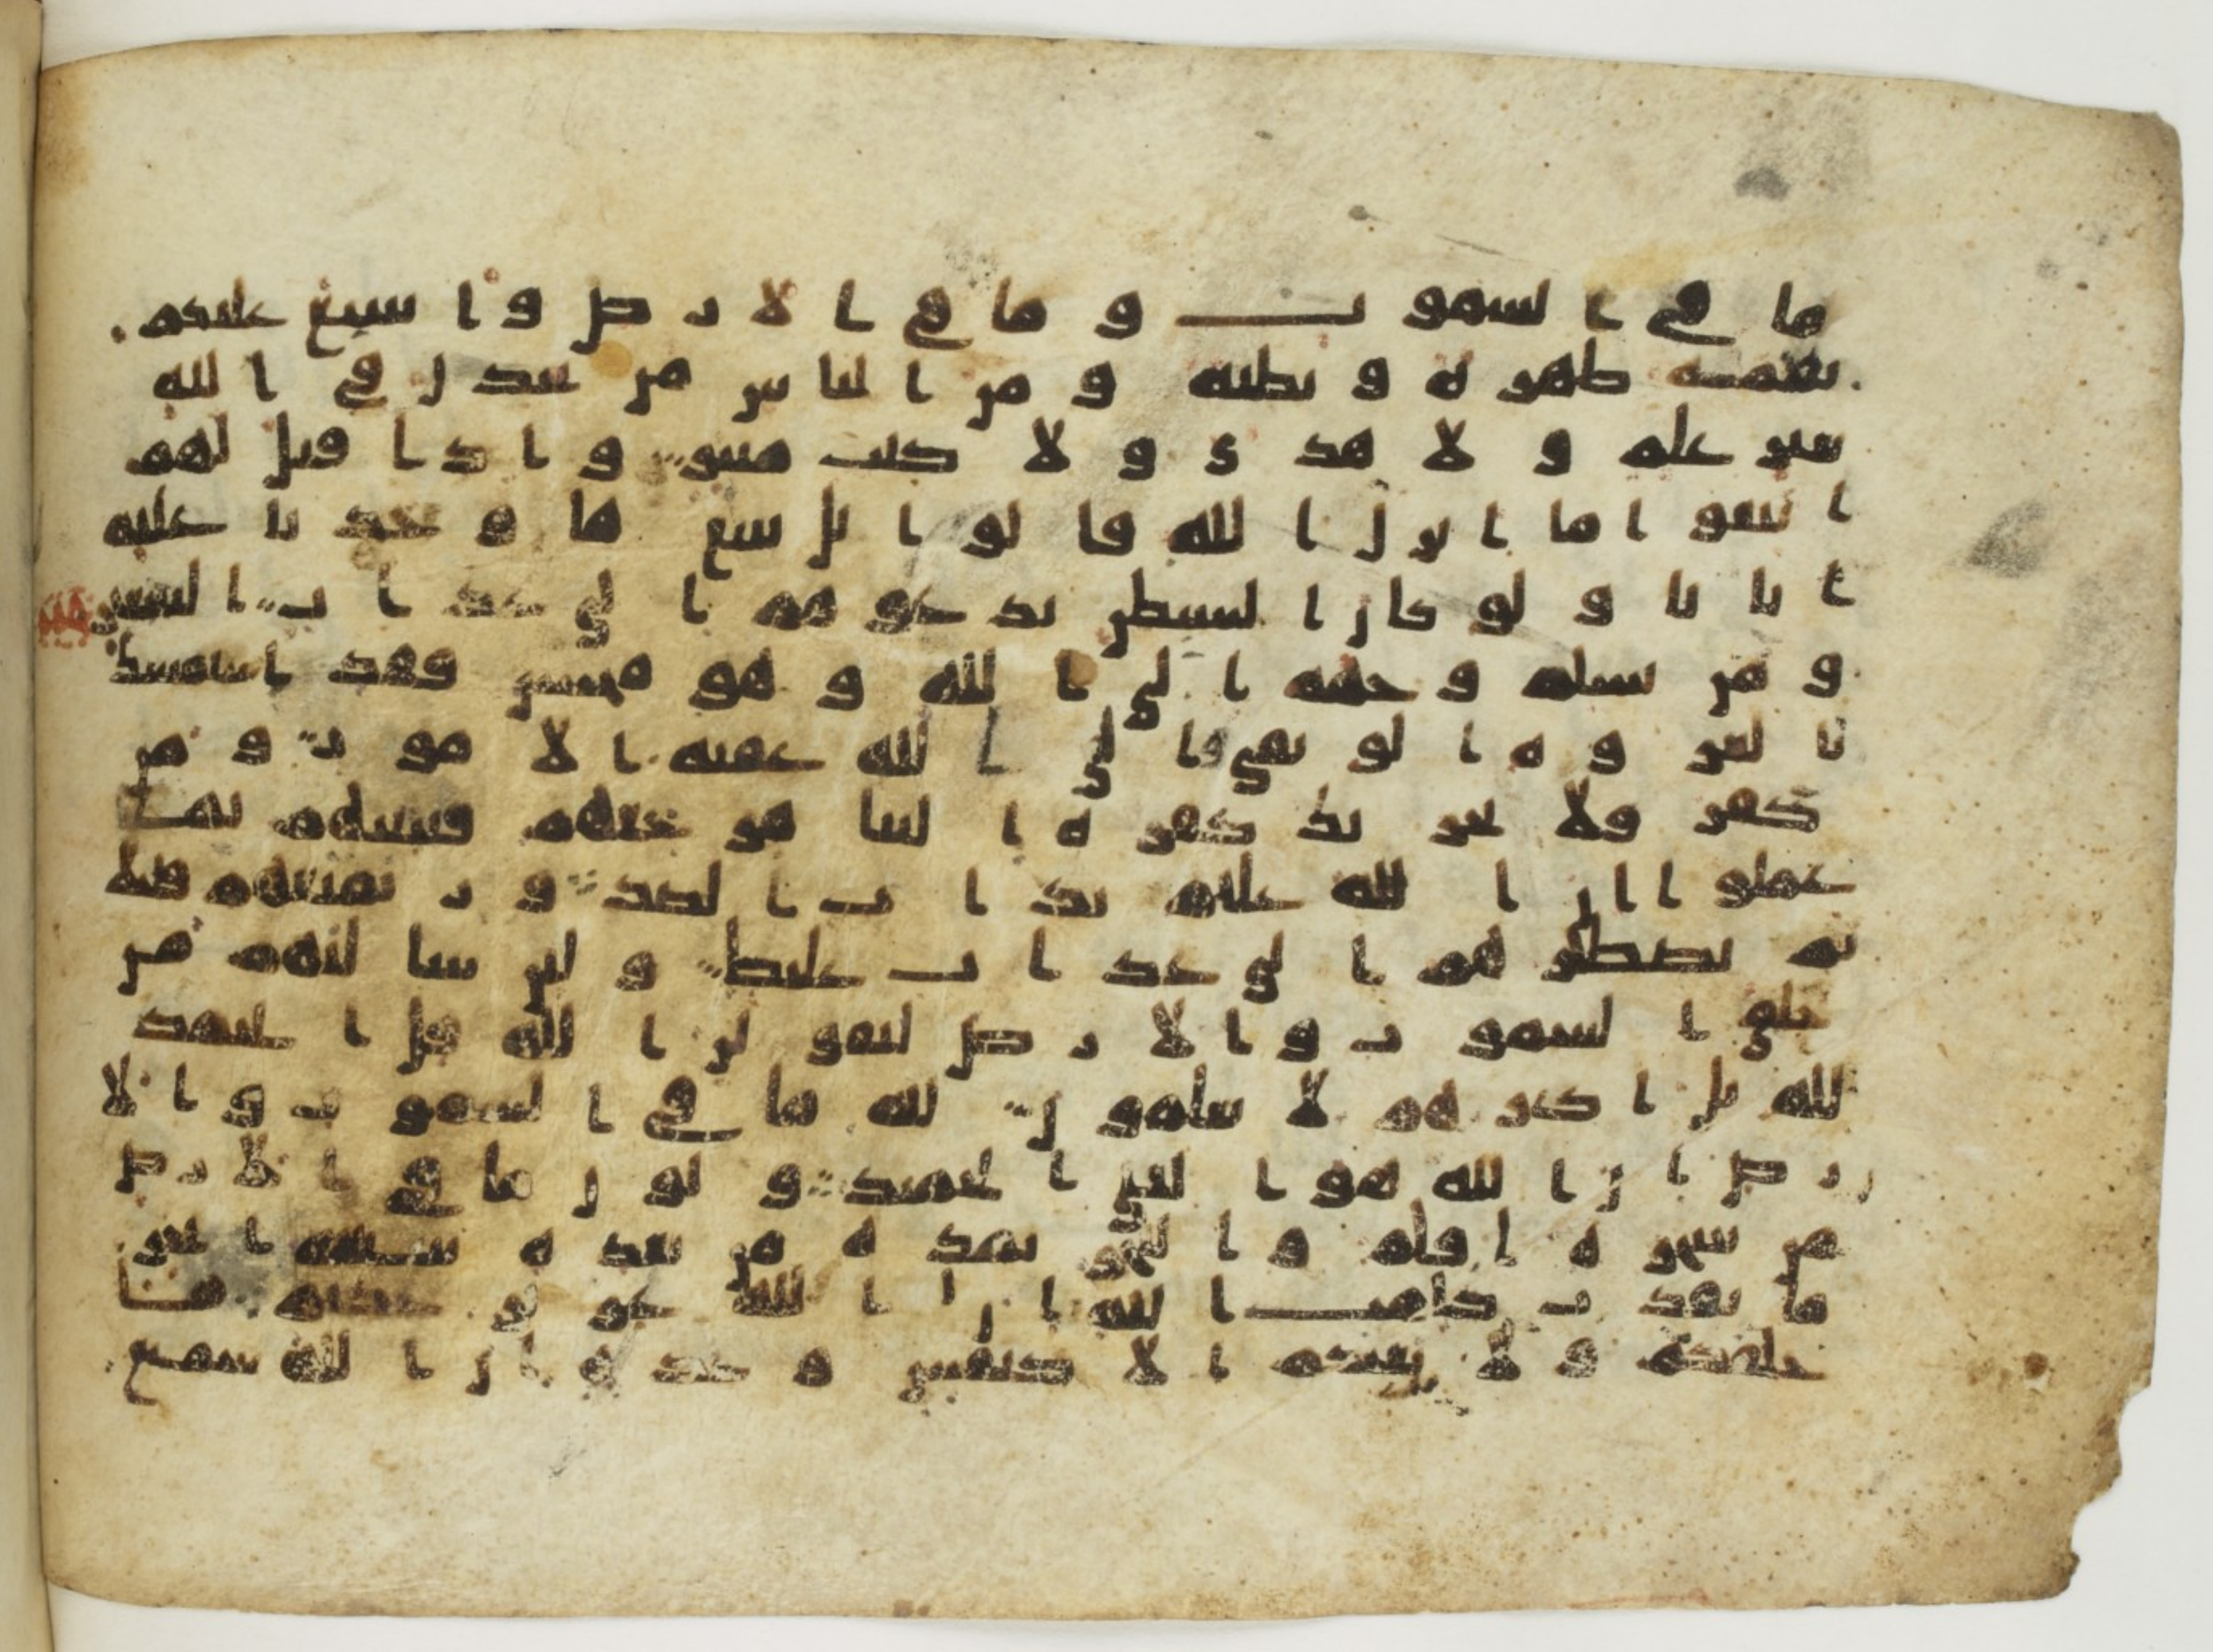 ما في السموت وما في الارض واسبغ عليكم
نعمه ظهره وبطنه ومن الناس من يجدل في الله
بغير علم ولا هدى ولا كتب منير واذا قيل لهم
اتبعوا ما انزل الله قالوا بل نتبع ما وجدنا عليه
ابانا ولو كان الشيطن يدعوهم الى عذاب السعير
ومن يسلم وجهه الى الله وهو محسن فقد استمسك
بالعروه الوثقى والى الله عقبه الامور ومن
كفر فلا يحزنك كفره الينا مرجعهم فننبئهم بما
عملوا ان الله عليم بذات الصدور نمتعهم قليلا
ثم نضطرهم الى عذاب غليظ ولئن سالتهم من
خلق السموت والارض ليقولن الله قل الحمد
لله بل اكثرهم لا يعلمون لله ما في السموت والا
رض ان الله هو الغني الحميد ولو ان ما في الارض
من شجره اقلم والبحر يمده من بعده سبعه ابحر
ما نفدت كلمت الله ان الله عزيز حكيم ما
خلقكم ولا بعثكم الا كنفس وحده ان الله سميع